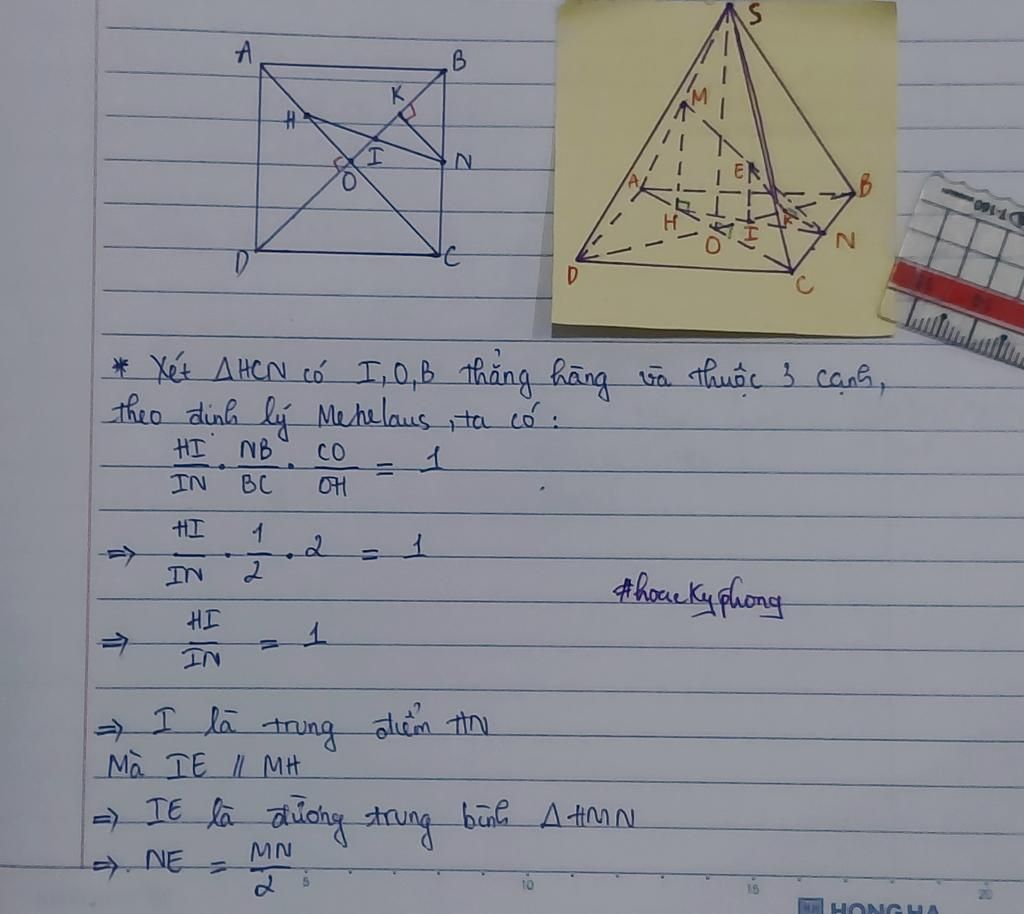 A
B
K
H
I
N
O
D
C
S
M
E
A
B
H
O
I
K
N
D
C
* Xét ΔHCN có I,O,B thẳng hàng và thuộc 3 cạnh,
theo định lý Menelaus, ta có:
HI/IN . NB/BC . CO/OH = 1
⇒ HI/IN . 1/2 . 2 = 1
#hoaekyphong
⇒ HI/IN = 1
⇒ I là trung điểm HN
Mà IE // MH
⇒ IE là đường trung bình ΔHMN
⇒ NE = MN/2
5 10 15 20
HONG HA